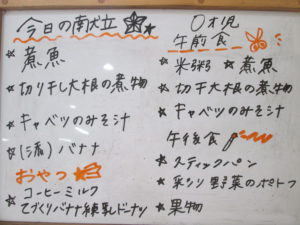 今日の献立
煮魚
切り干し大根の煮物
キャベツのみそ汁
バナナ
おやつ
コーヒーミルク
てづくりバナナ練乳ドーナツ
0才児
午前食
米粥 煮魚
切干大根の煮物
キャベツのみそ汁
午後食
スティックパン
野菜のポトフ
果物